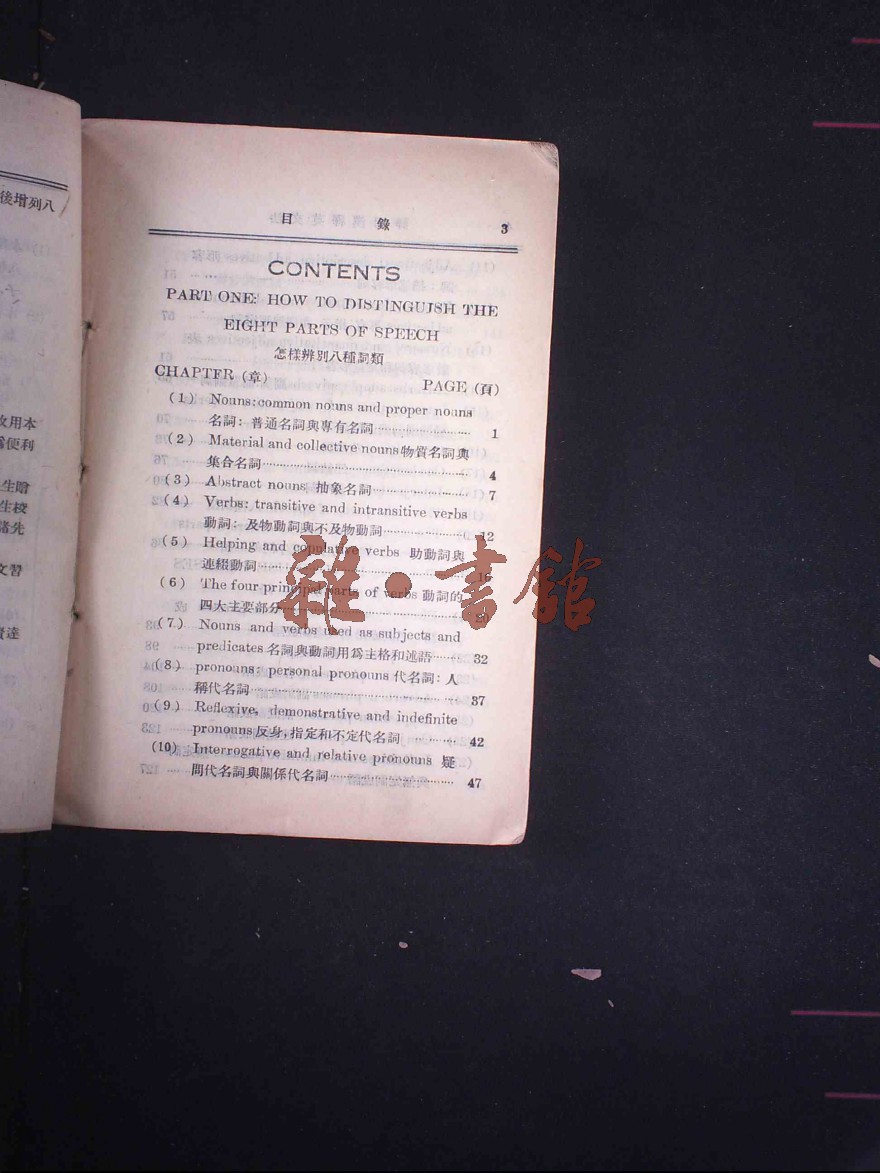 後增列八
攻用本
爲便利
生贈
生校
諸先
文習
達
目錄 3
CONTENTS
PART ONE: HOW TO DISTINGUISH THE
EIGHT PARTS OF SPEECH
怎樣辨別八種詞類
CHAPTFR (章) PAGE (頁)
(1) Nouns: common nouns and proper nouns
名詞: 普通名詞與專有名詞 1
(2) Material and collective nouns 物質名詞與
集合名詞 4
(3) Abstract nouns 抽象名詞 7
(4) Verbs: transitive and intransitive verbs
動詞: 及物動詞與不及物動詞 12
(5) Helping and copulative verbs 助動詞與
連綴動詞 16
(6) The four principal parts of verbs 動詞的
四大主要部分
(7) Nouns and verbs used as subjects and
predicates 名詞與動詞用爲主格和述語 32
(8) pronouns: personal pronouns 代名詞: 人
稱代名詞 37
(9) Reflexive, demonstrative and indefinite
pronouns 反身,指定和不定代名詞 42
(10) Interrogative and relative pronouns 疑
問代名詞與關係代名詞 47
雜·書館